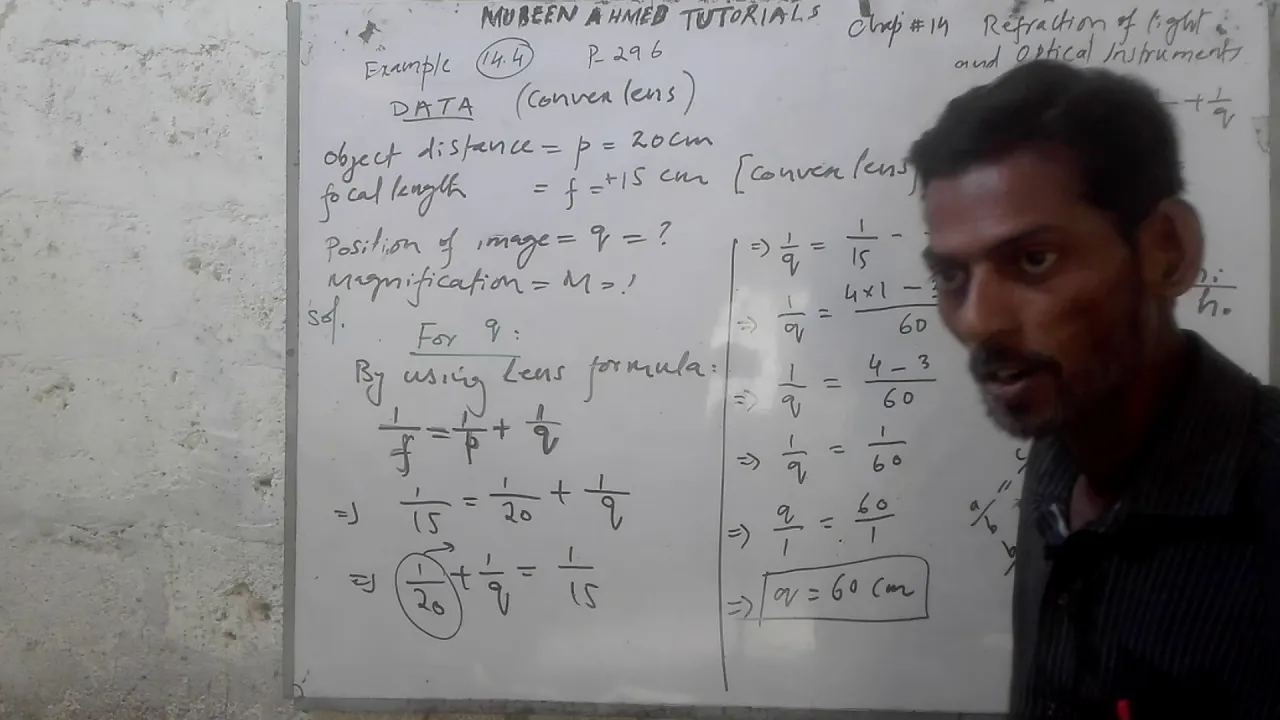 MUBEEN AHMED TUTORIALS
Chap # 14 Refraction of light
and Optical Instruments
Example 14.4 P-296
DATA (Convex lens)
Object distance = p = 20cm
focal length = f = +15 cm [Convex lens
Position of image = q = ?
Magnification = M = ?
Sol.
For q:
By using Lens formula:
1/f = 1/p + 1/q
=> 1/15 = 1/20 + 1/q
=> 1/20 + 1/q = 1/15
=> 1/q = 1/15 -
=> 1/q = 4x1 - / 60
=> 1/q = 4 - 3 / 60
=> 1/q = 1/60
=> q/1 = 60/1
=> q = 60 cm
+ 1/q
a/b